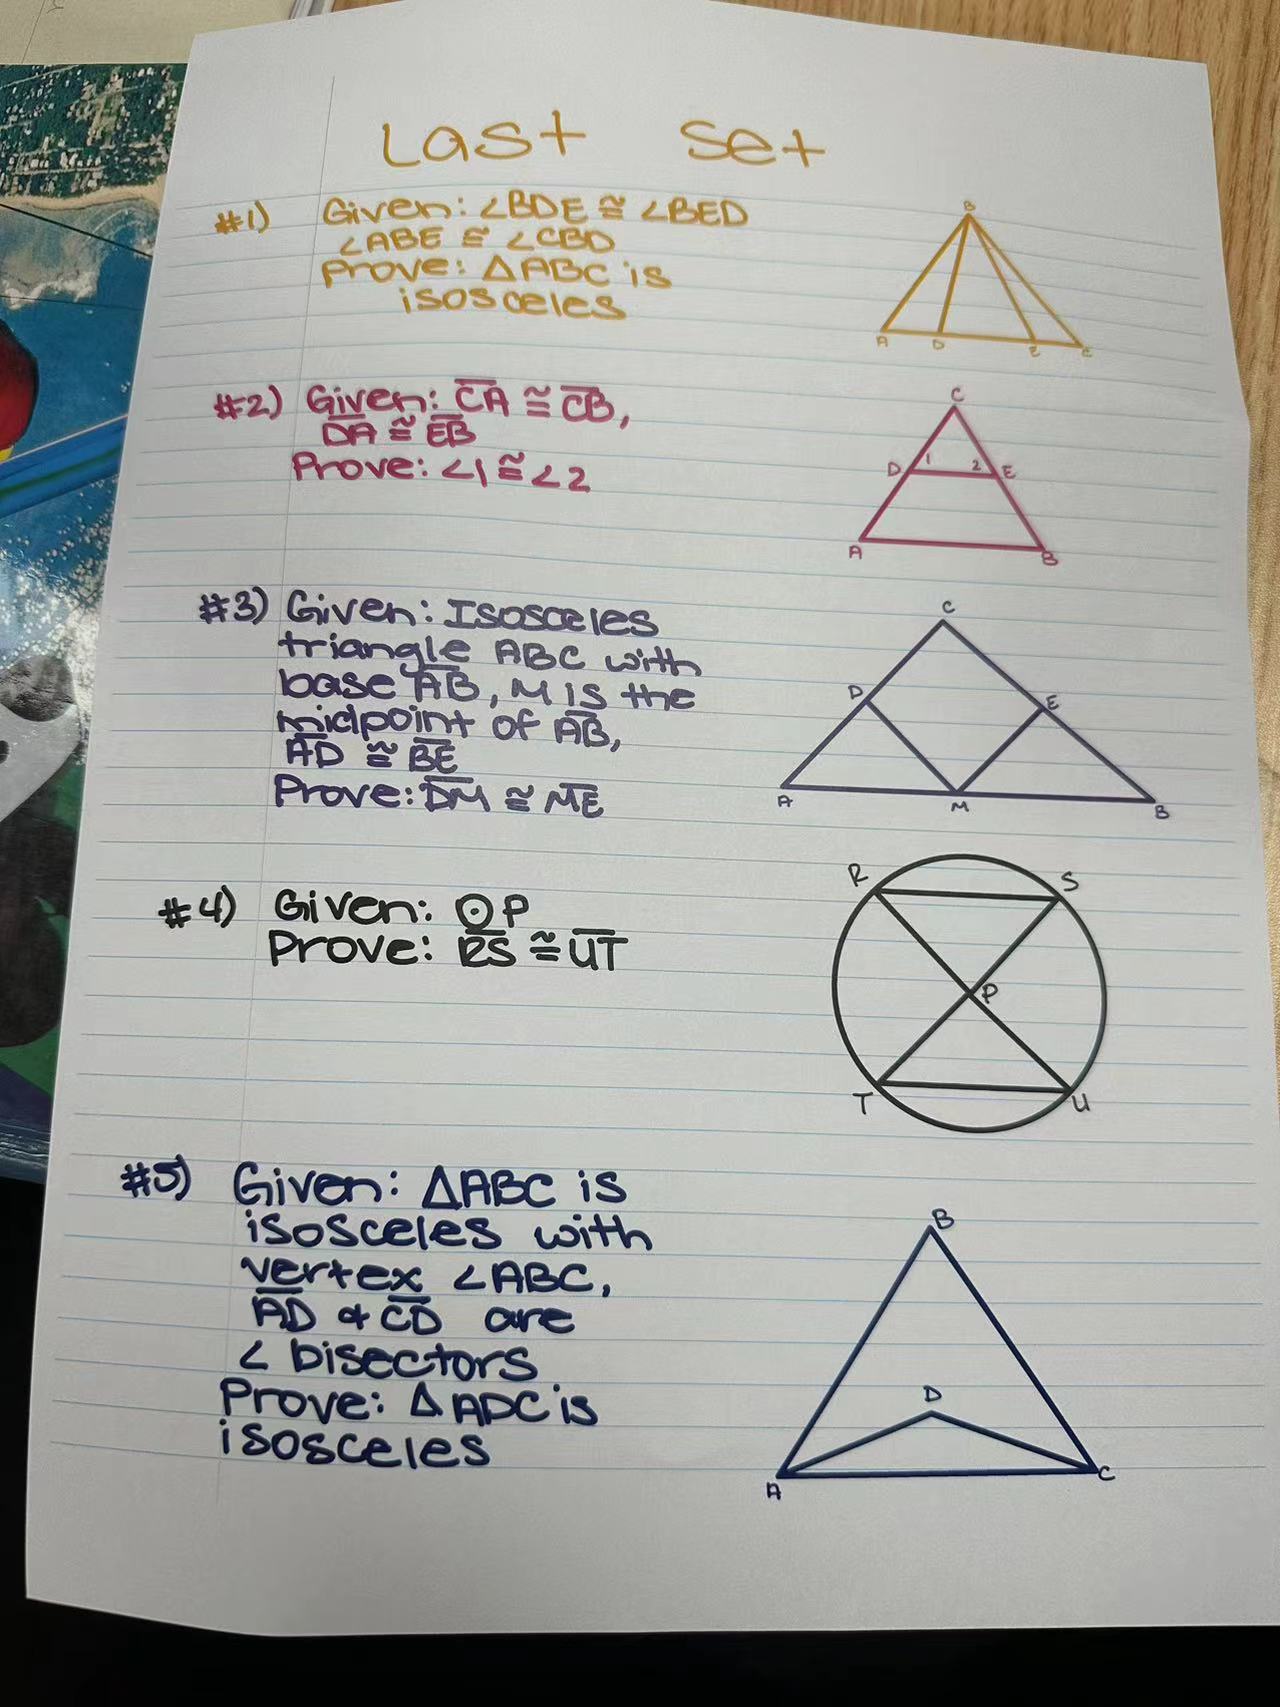 Last set
#1) Given: ∠BDE ≅ ∠BED
∠ABE ≅ ∠CBD
Prove: △ABC is
isosceles
B
A D E C
#2) Given: C̅A̅ ≅ C̅B̅,
D̅A̅ ≅ E̅B̅
Prove: ∠1 ≅ ∠2
C
D 1 2 E
A B
#3) Given: Isosceles
triangle ABC with
base A̅B̅, M is the
midpoint of A̅B̅,
A̅D̅ ≅ B̅E̅
Prove: D̅M̅ ≅ M̅E̅
C
D E
A M B
#4) Given: ⊙P
Prove: R̅S̅ ≅ U̅T̅
R S
P
T U
#5) Given: △ABC is
isosceles with
vertex ∠ABC,
A̅D̅ & C̅D̅ are
∠ bisectors
Prove: △ADC is
isosceles
B
D
A C